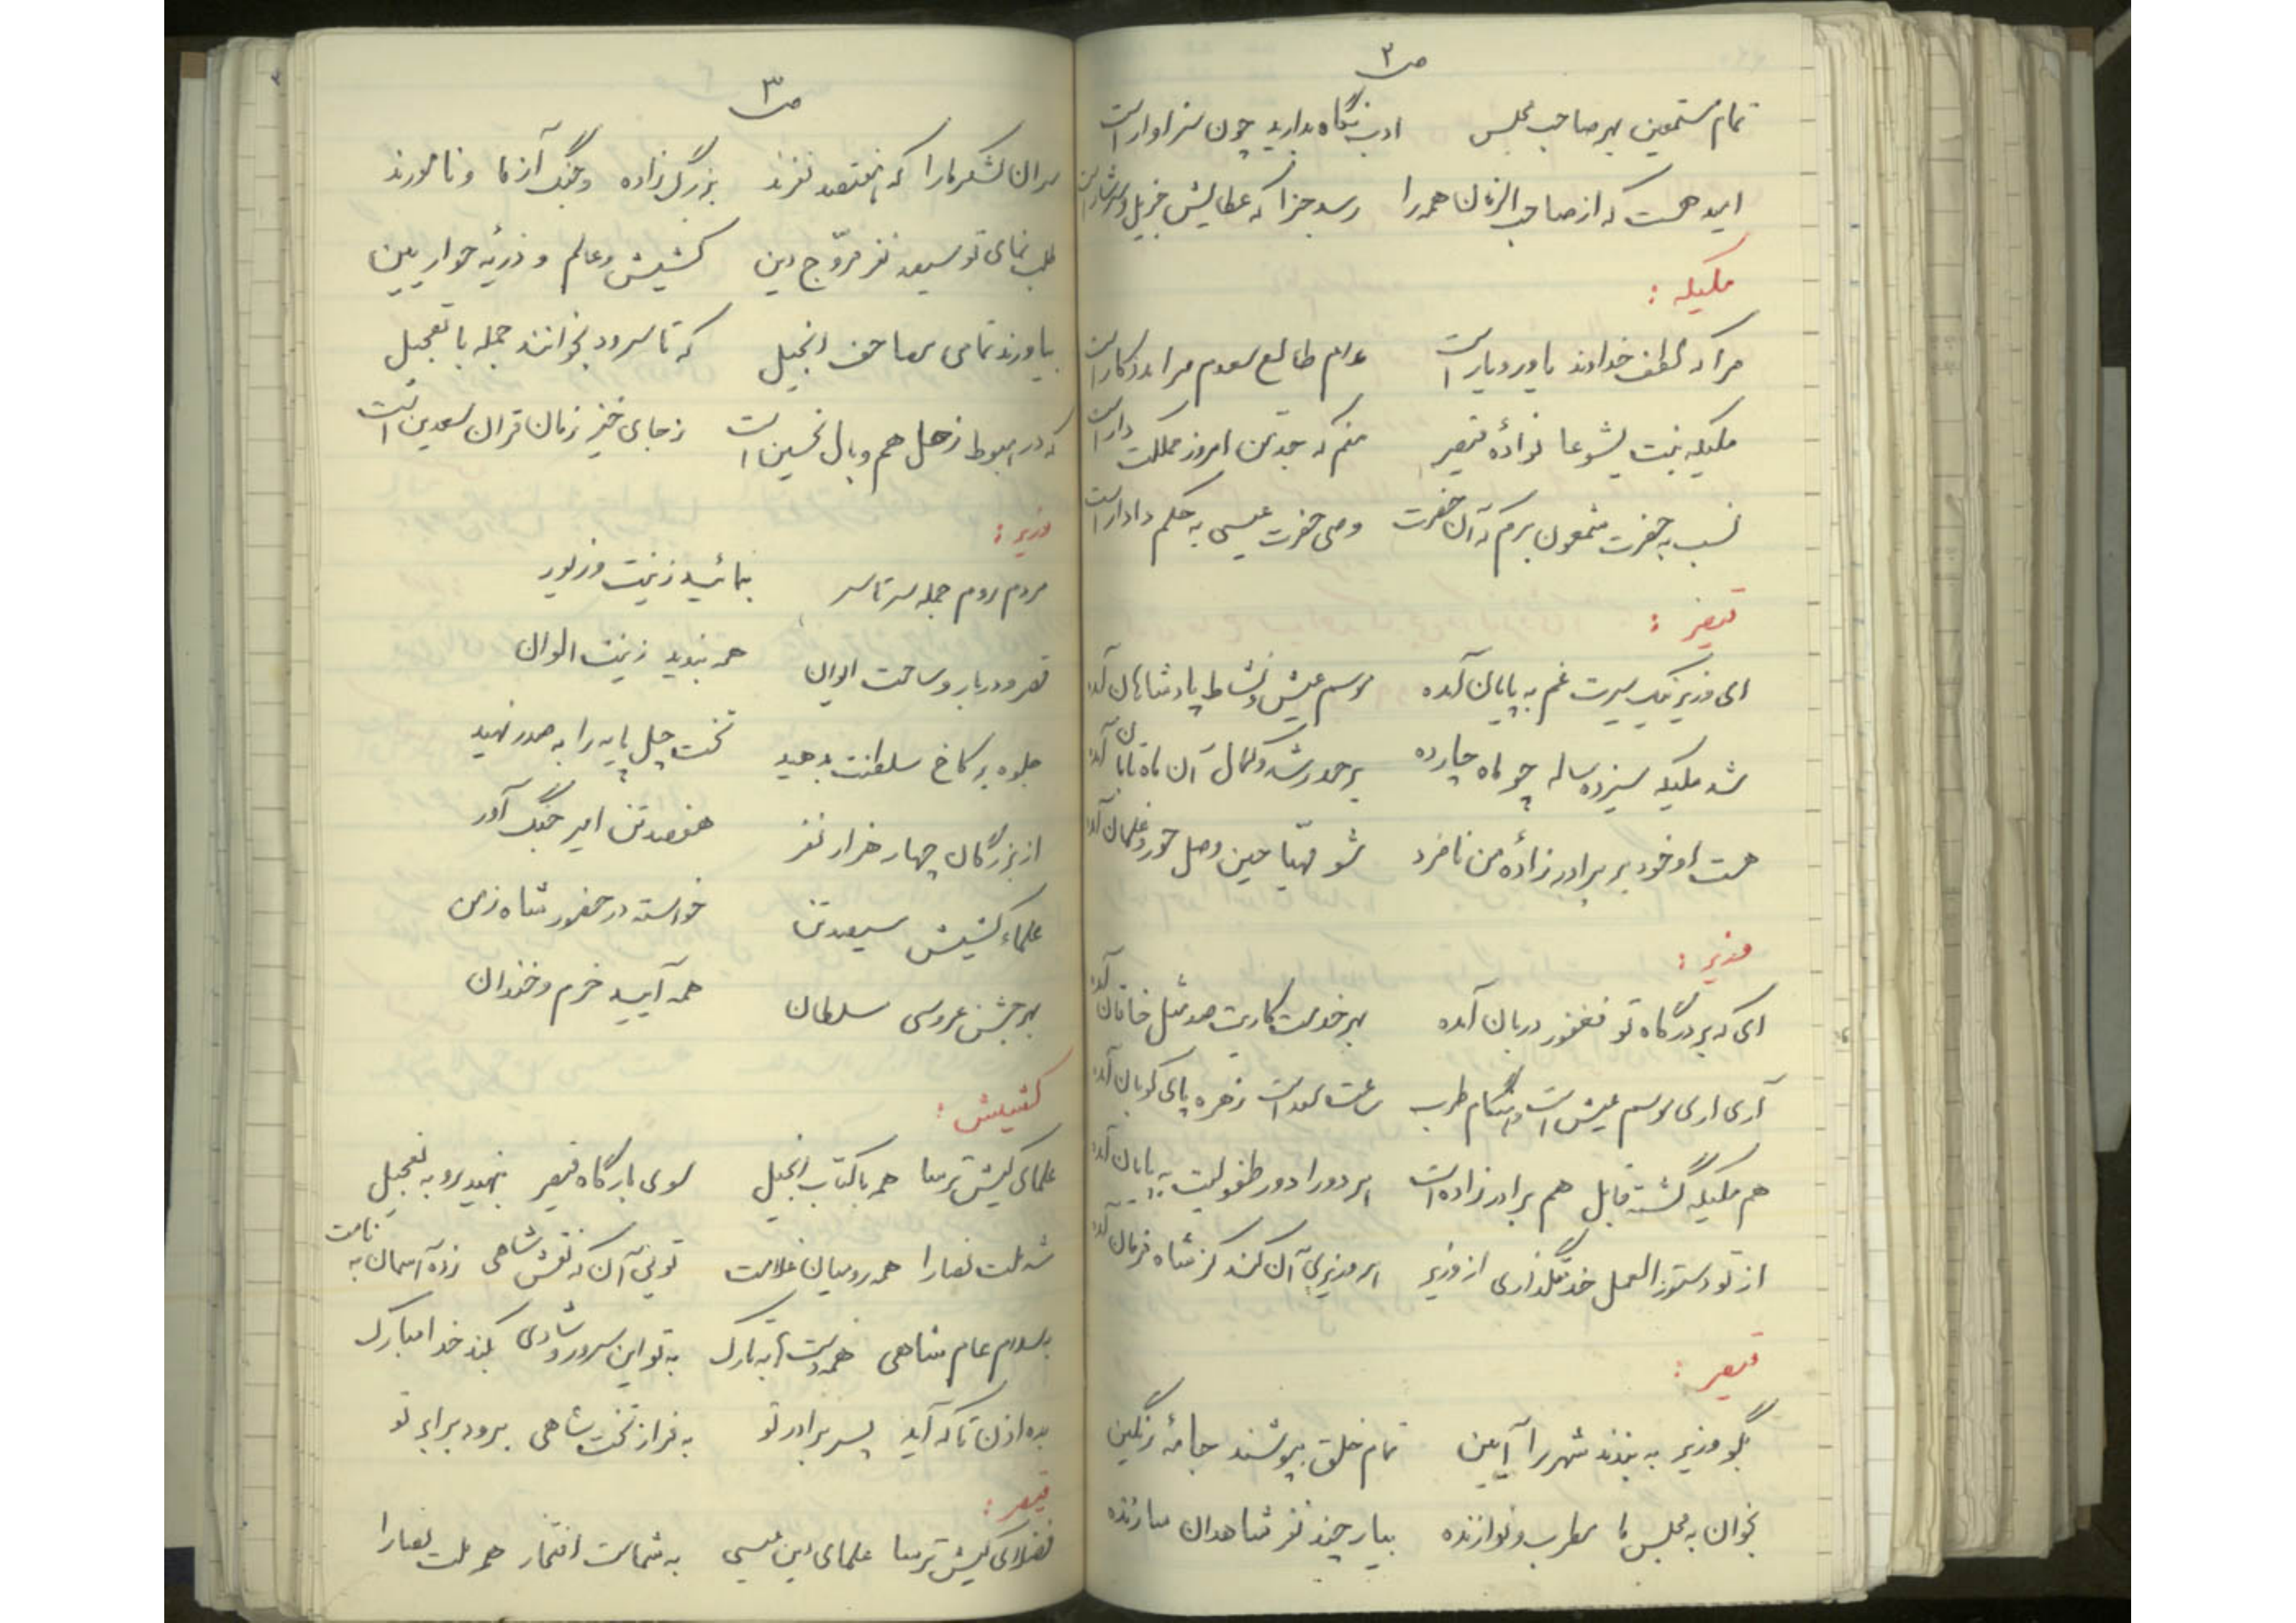 ص۲
تمام مستمعین بهر صاحب مجلس ادب نگاه بدارید چون سزاوار است
امید هست که از صاحب الزمان همه را رسد جزا که عطایش جزیل و سرشار است
ملیکه :
مرا که لطف خداوند یاور و یار است مدام طالع سعدم مرا مددکار است
ملیکه بنت یشوعا نوادهٔ قیصر منم که جد من امروز مملکت دار است
نسب به حضرت شمعون برم که آن حضرت وصی حضرت عیسی به حکم دادار است
قیصر :
ای وزیر نیک سیرت غم به پایان آمده موسم عیش و نشاط پادشاهان آمده
شد ملیکه سیزده ساله چو ماه چارده بر حد رشد و کمال آن ماه تابان آمده
هست او خود بر برادر زادهٔ من نامزد شو مهیّا حین وصل حور و غلمان آمده
وزیر :
ای که بر درگاه تو فغفور دربان آمده بهر خدمت کاریت صد مثل خاقان آمده
آری آری موسم عیش است و هنگام طرب ساعت سعد است زهره پای کوبان آمده
هم ملیکه گشته قابل هم برادر زاده است هر دو را دور طفولیت به پایان آمده
از تو دستور العمل خدمتگذاری از وزیر هر وزیری آن کند کز شاه فرمان آمده
قیصر :
بگو وزیر به بندند شهر را آیین تمام خلق بپوشند جامهٔ رنگین
بخوان به مجلس ما مطرب و نوازنده بیار چند نفر شاهدان سازنده
ص۳
سران لشکر ما را که هفتصد نفرند بزرگ زاده و جنگ آزما و نامورند
طلب نمای تو سیصد نفر مروّج دین کشیش و عالم و ذریّه حواریین
بیاورند تمامی مصاحف انجیل که تا سرود بخوانند جمله با تعجیل
که در هبوط زحل هم وبال نحسین است ز جای خیز زمان قران سعدین است
وزیر :
مردم روم جمله سرتاسر بنمائید زینت و زیور
قصر و دربار و ساحت ایوان همه بندید زینت الوان
جلوه بر کاخ سلطنت بدهید تخت چل پایه را به صدر نهید
از بزرگان چهار هزار نفر هفصد تن امیر جنگ آور
علماء کشیش سیصد تن خواسته در حضور شاه زمن
بهر جشن عروسی سلطان همه آیید خرم و خندان
کشیش :
علمای کیش ترسا همه با کتاب انجیل سوی بارگاه قیصر بنهید رو به تعجیل
شه ملت نصارا همه رومیان غلامت تویی آن که نقش شاهی زده آسمان به نامت
به سلام عام شاهی همه دست ها به تارک به تو این سرور و شادی بکند خدا مبارک
بده اذن تا که آید پسر برادر تو به فراز تخت شاهی برود برابر تو
قیصر :
فضلای کیش ترسا علمای دین عیسی به شماست افتخار همه ملت نصارا